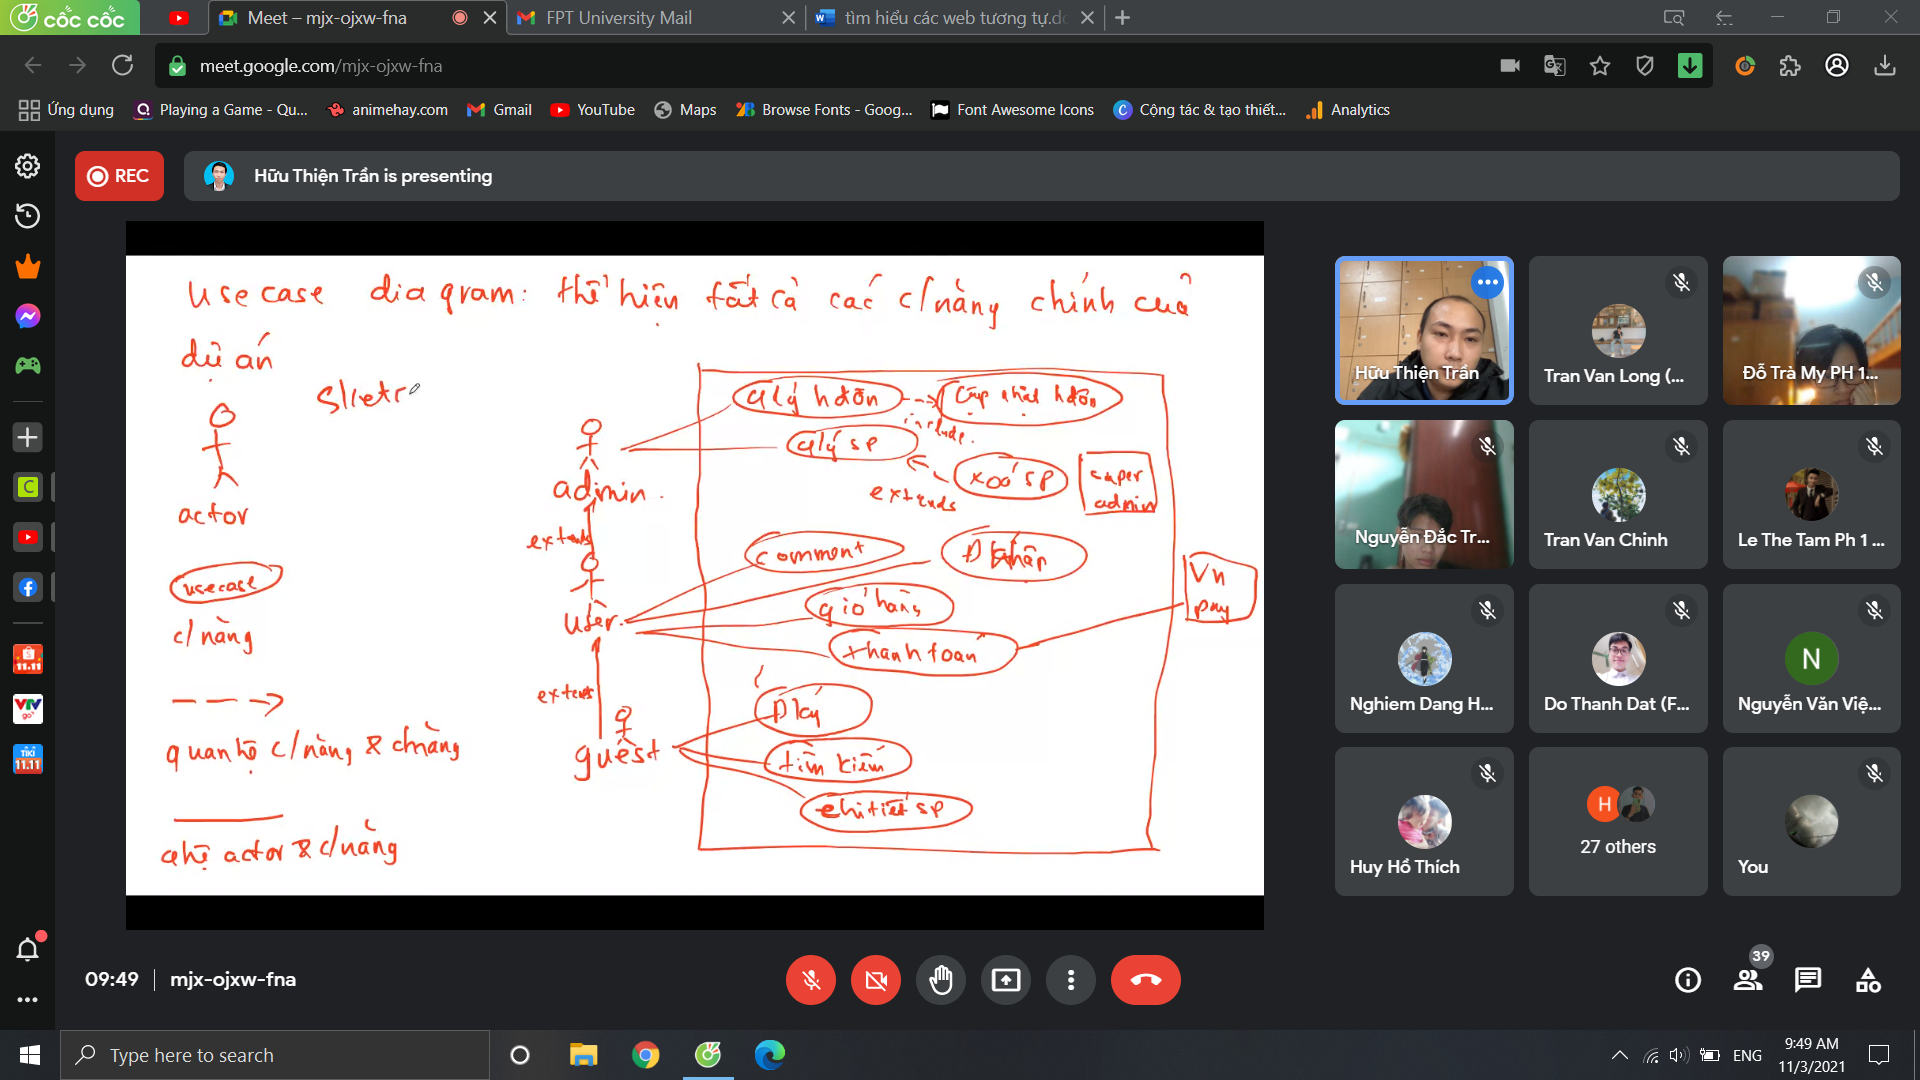 cốc cốc
Meet – mjx-ojxw-fna
FPT University Mail
tìm hiểu các web tương tự.do
meet.google.com/mjx-ojxw-fna
Ứng dụng
Playing a Game - Qu...
animehay.com
Gmail
YouTube
Maps
Browse Fonts - Goog...
Font Awesome Icons
Cộng tác & tạo thiết...
Analytics
REC
Hữu Thiện Trần is presenting
use case diagram: thể hiện tất cả các c/năng chính của
dự án
actor
usecase
c/năng
quan hệ c/năng & c/năng
qhệ actor & c/năng
admin
extends
user
extends
guest
qlý hđơn
Cập nhật hđơn
include
qlý sp
xoá sp
extends
super
admin
comment
giỏ hàng
thanh toán
Vn
pay
Đ ký
tìm kiếm
chi tiết sp
Hữu Thiện Trần
Tran Van Long (...
Đỗ Trà My PH 1...
Nguyễn Đắc Tr...
Tran Van Chinh
Le The Tam Ph 1 ...
Nghiem Dang H...
Do Thanh Dat (F...
N
Nguyễn Văn Việ...
Huy Hồ Thích
H
27 others
You
11.11
VTV
go
TIKI
11.11
09:49
mjx-ojxw-fna
39
Type here to search
ENG
9:49 AM
11/3/2021